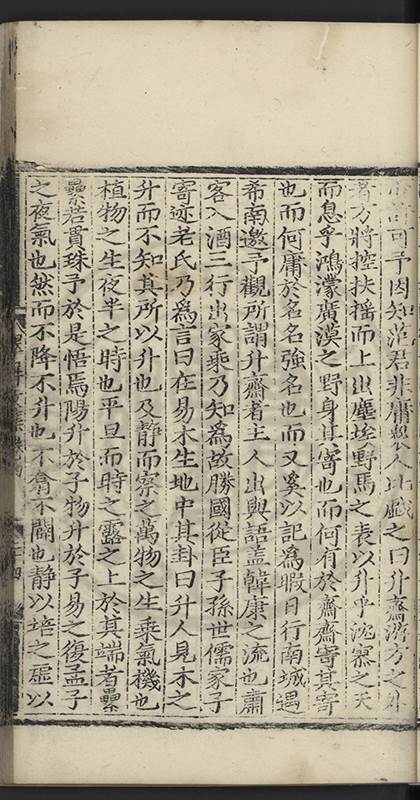 可予因知范君非庸衆人也戲之曰升齋游方之外
者方將控扶摇而上出塵埃野馬之表以升乎沈寥之天
而息乎鴻濛廣漠之野身其寄也而何有於齋齋寄其寄
也而何庸於名名強名也而又奚以記爲暇日行南城遇
希南邀予觀所謂升齋者主人出與語盖韓康之流也肅
客入酒三行出家乘乃知爲故勝國從臣子孫世儒家子
寄迹老氏乃爲言曰在易木生地中其卦曰升人見木之
升而不知其所以升也及静而察之萬物之生乘氣機也
植物之生夜半之時也平旦而時之露之上於其端者纍
纍若貫珠予於是悟焉陽升於子物升於子易之復孟子
之夜氣也然而不降不升也不翕不闢也静以培之虚以